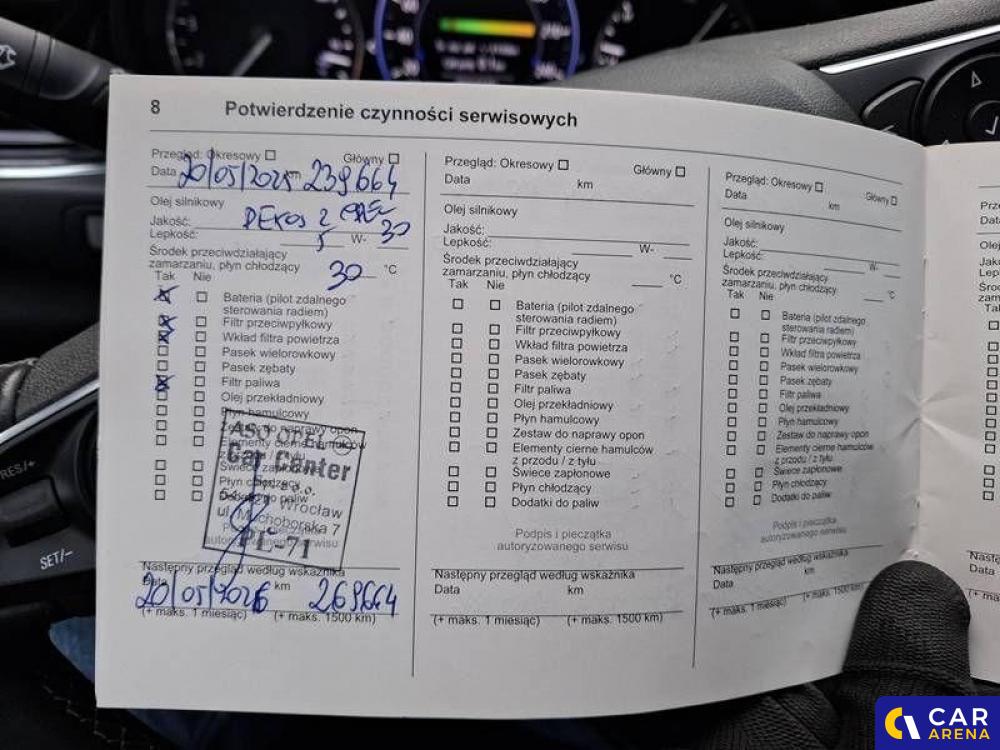 8 Potwierdzenie czynności serwisowych
Przegląd: Okresowy Główny
Data 20/05/2025 km 239664
Olej silnikowy
Jakość: DEXOS 2 OPEL
Lepkość: 5 W- 30
Środek przeciwdziałający
zamarzaniu, płyn chłodzący 30 °C
Tak Nie
Bateria (pilot zdalnego
sterowania radiem)
Filtr przeciwpyłkowy
Wkład filtra powietrza
Pasek wielorowkowy
Pasek zębaty
Filtr paliwa
Olej przekładniowy
Płyn hamulcowy
Zestaw do naprawy opon
Elementy cierne hamulców
z przodu / z tyłu
Świece zapłonowe
Płyn chłodzący
Dodatki do paliw
ASO OPEL
Car Center
Sp. z o.o.
Wrocław
ul. Muchoborska 7
PL-71
autoryzowanego serwisu
Następny przegląd według wskaźnika
Data km
20/05/2026 269664
(+ maks. 1 miesiąc) (+ maks. 1500 km)
Przegląd: Okresowy Główny
Data km
Olej silnikowy
Jakość:
Lepkość: W-
Środek przeciwdziałający
zamarzaniu, płyn chłodzący °C
Tak Nie
Bateria (pilot zdalnego
sterowania radiem)
Filtr przeciwpyłkowy
Wkład filtra powietrza
Pasek wielorowkowy
Pasek zębaty
Filtr paliwa
Olej przekładniowy
Płyn hamulcowy
Zestaw do naprawy opon
Elementy cierne hamulców
z przodu / z tyłu
Świece zapłonowe
Płyn chłodzący
Dodatki do paliw
Podpis i pieczątka
autoryzowanego serwisu
Następny przegląd według wskaźnika
Data km
(+ maks. 1 miesiąc) (+ maks. 1500 km)
Przegląd: Okresowy Główny
Data km
Olej silnikowy
Jakość:
Lepkość: W-
Środek przeciwdziałający
zamarzaniu, płyn chłodzący °C
Tak Nie
Bateria (pilot zdalnego
sterowania radiem)
Filtr przeciwpyłkowy
Wkład filtra powietrza
Pasek wielorowkowy
Pasek zębaty
Filtr paliwa
Olej przekładniowy
Płyn hamulcowy
Zestaw do naprawy opon
Elementy cierne hamulców
z przodu / z tyłu
Świece zapłonowe
Płyn chłodzący
Dodatki do paliw
Podpis i pieczątka
autoryzowanego serwisu
Następny przegląd według wskaźnika
Data km
(+ maks. 1 miesiąc) (+ maks. 1500 km)
RES/+
SET/-
CAR
ARENA